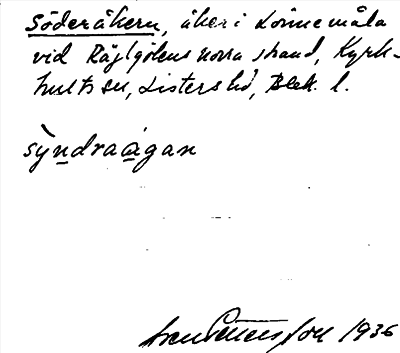 Söderåkern, åker i Lönnemåla
vid Räftgölens norra strand, Kyrk-
hults sn, Listers hd, Blek. l.
sỳndraågan
Sven Pettersson 1936